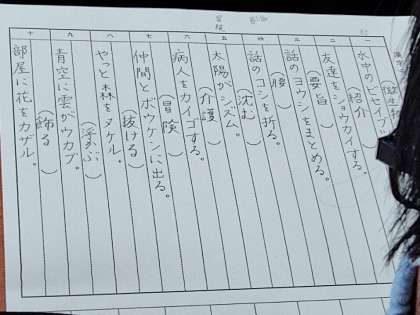 一 水中のビセイブ
二 友達をショウカイする。
（紹介）
三 話のヨウシをまとめる。
（要旨）
四 話のコシを折る。
（腰）
五 太陽がシズム。
（沈む）
六 病人をカイゴする。
（介護）
七 仲間とボウケンに出る。
（冒険）
八 やっと森をヌケル。
（抜ける）
九 青空に雲がウカブ。
（浮かぶ）
十 部屋に花をカザル。
（飾る）